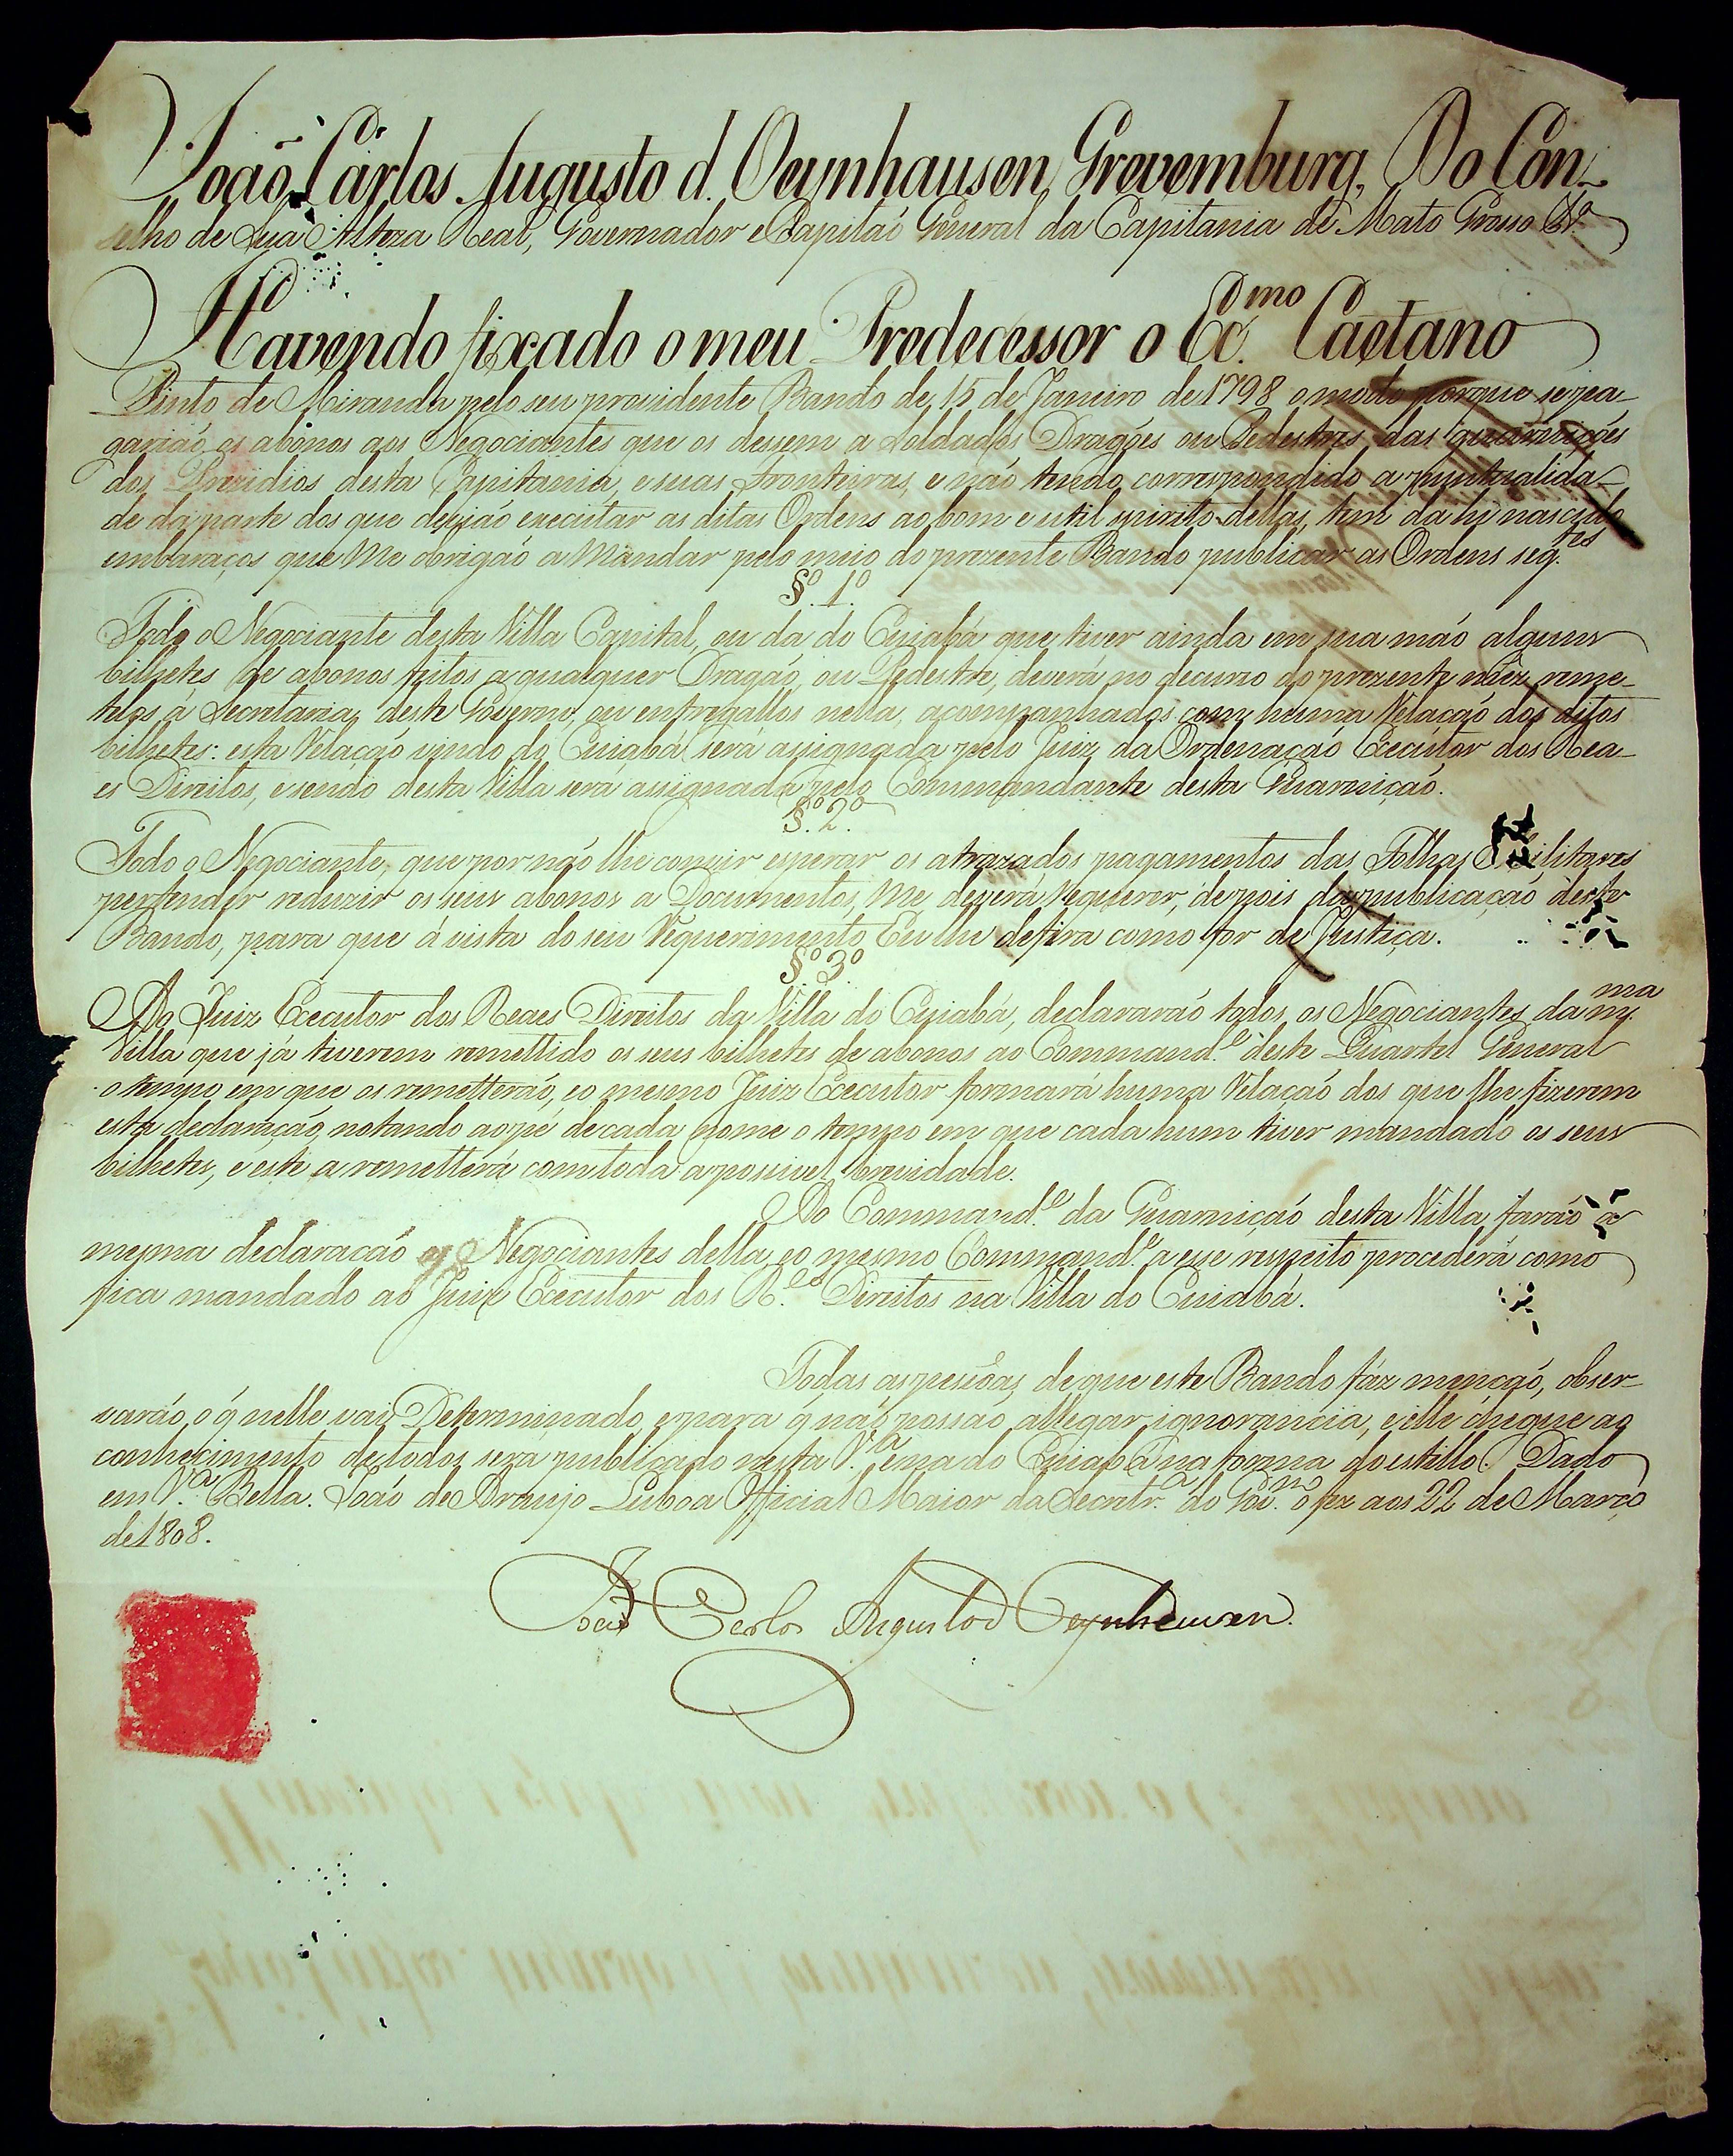 João Carlos Augusto d. Oeynhausen Grevemburg, Do Con-
selho de Sua Alteza Real, Governador e Capitaõ General da Capitania de Mato Grosso &.ª
Havendo fixado o meu Predecessor o Ex.mo Caetano
Pinto de Miranda pelo seu providente Bando de 15 de Janeiro de 1798 o modo porque se pa-
gariaõ os abonos aos Negociantes que os dessem a Soldados Dragões ou Pedestres das guarnições
dos Prezidios desta Capitania, e suas Fronteiras, e naõ tendo correspondido a puntualida-
de da parte dos que devjaõ executar as ditas Ordens ao bom e util espirito dellas, tem dahi nascido
embaraços que Me obrigaõ a Mandar pelo meio do prezente Bando publicar as Ordens seg.tes
§.º 1.º
Todo o Negociante desta Villa Capital, ou da do Cuiabá que tiver ainda em sua maõ alguns
bilhetes de abonos feitos a qualquer Dragaõ, ou Pedestre, deverá no decurso do prezente mêz reme-
telos á Secretaria deste Governo, ou entregallos nella, acompanhados com huma Relaçaõ dos ditos
bilhetes: esta Relaçaõ vindo do Cuiabá será assignada pelo Juiz da Ordenaçaõ Executor dos Rea-
es Direitos, e sendo desta Villa será assignada pelo Commandante desta Guarniçaõ.
§.º 2.º
Todo o Negociante, que por naõ lhe convir esperar os atrazados pagamentos das Folhas Militares
pertender reduzir os seus abonos a Documentos, Me deverá Requerer, depois da publicaçaõ deste
Bando, para que á vista do seu Requerimento Eu lhe defira como for de Justiça.
§.º 3.º
Ao Juiz Executor dos Reaes Direitos da Villa do Cuiabá, declararaõ todos os Negociantes da m.ma
Villa que já tiverem remettido os seus bilhetes de abonos ao Command.e deste Quartel General
o tempo em que os remetteraõ, e o mesmo Juiz Executor formará huma Relaçaõ dos que lhe fizerem
esta declaraçaõ, notando ao pé de cada nome o tempo em que cada hum tiver mandado os seus
bilhetes, e este a remetterá com toda a possivel brevidade.
Ao Command.e da Guarniçaõ desta Villa faraõ a
mesma declaracaõ os Negociantes della, e o mesmo Command.e a esse respeito procederá como
fica mandado ao Juiz Executor dos R.es Direitos na Villa do Cuiabá.
Todas as pessôas de que este Bando fáz mençaõ, obser-
varáõ o q̃ nelle vai Determinado, e para q̃ naõ possaõ allegar ignorancia, e elle chegue ao
conhecimento de todos será publicado nesta V.ª e na do Cuiabá na forma do estillo. Dado
em V.ª Bella. Joaõ de Araujo Lisboa Official Maior da Secretr.ª do Gov.no o fez aos 22 de Março
de 1808.
Joaõ Carlos Augusto d'Oeynhausen.